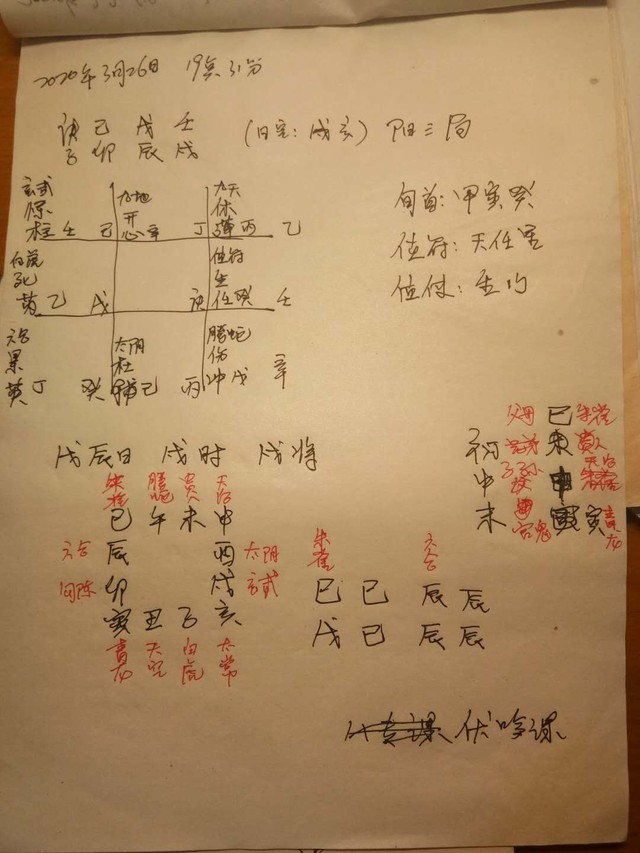 2020年3月26日 19点31分
庚 己 戊 壬 (旬空:戌亥) 阳三局
子 卯 辰 戌
玄武 九地 九天
开 休
柱 壬 己 心 辛 丁 丙 乙
旬首:甲寅癸
白虎 值符
死 生
乙 戊 庚 任癸 壬
值符:天任星
值使:生门
六合 太阴 腾蛇
杜 伤
英 丁 癸 辅己 丙 冲戊 辛
戊辰日 戌时 戌将
父母 巳 朱雀
未 贵人
子孙 申 天后
官鬼 寅 青龙
朱雀 腾蛇 贵人 天后
巳 午 未 申
六合 辰 酉 太阴
勾陈 卯 戌 玄武
寅 丑 子 亥
青龙 天空 白虎 太常
朱雀 六合
巳 巳 辰 辰
戊 巳 辰 辰
伏吟课